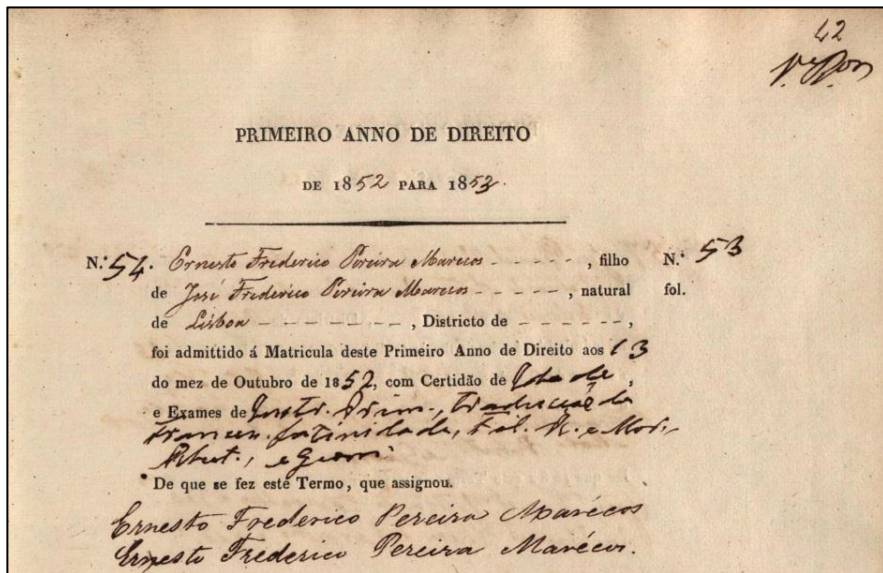 42
PRIMEIRO ANNO DE DIREITO
DE 1852 PARA 1853.
N.º 54. Ernesto Frederico Pereira Marecos - - - - -, filho N.º 53
de José Frederico Pereira Marecos - - - - -, natural fol.
de Lisboa - - - - - - - -, Districto de - - - - - -,
foi admittido á Matricula deste Primeiro Anno de Direito aos 13
do mez de Outubro de 1852, com Certidão de Idade,
e Exames de Instr. Prim., Traducção do
Francez. Latinidade, Fil. R. e Mor.,
Rhet., e Geom.
De que se fez este Termo, que assignou.
Ernesto Frederico Pereira Marécos
Ernesto Frederico Pereira Marécos.